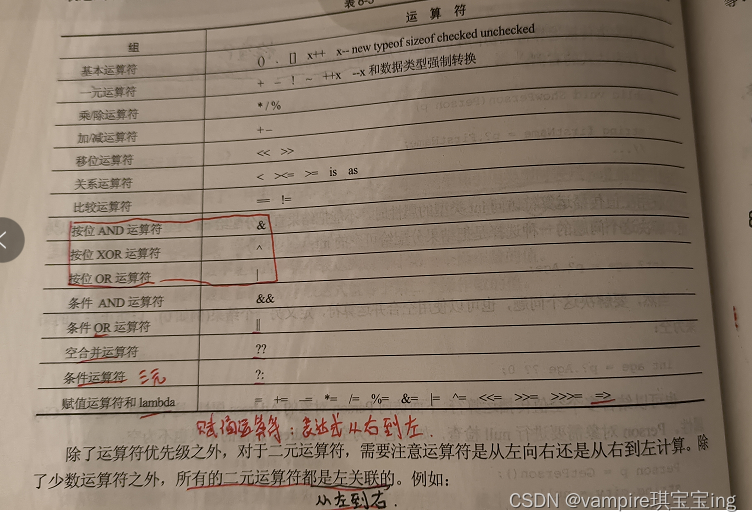 表 8-5
组 运 算 符
基本运算符 () . [] x++ x-- new typeof sizeof checked unchecked
一元运算符 + － ! ~ ++x --x 和数据类型强制转换
乘/除运算符 * / %
加/减运算符 + –
移位运算符 << >>
关系运算符 < ><= >= is as
比较运算符 == !=
按位 AND 运算符 &
按位 XOR 运算符 ^
按位 OR 运算符 |
条件 AND 运算符 &&
条件 OR 运算符 ||
空合并运算符 ??
条件运算符 三元 ?:
赋值运算符和 lambda = += -= *= /= %= &= |= ^= <<= >>= >>>= =>
赋值运算符：表达式从右到左.
除了运算符优先级之外，对于二元运算符，需要注意运算符是从左向右还是从右到左计算。除
了少数运算符之外，所有的二元运算符都是左关联的。例如：
从左到右.
CSDN @vampire琪宝宝ing